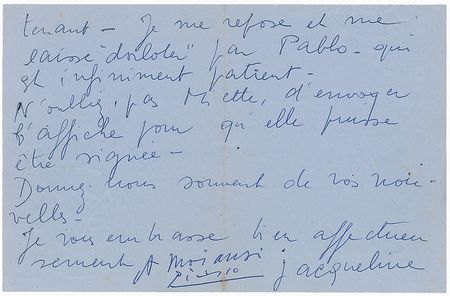 tenant - Je me repose et me
laisse "dorloter" par Pablo - qui
est infiniment patient -
N'oubliez pas Miette, d'envoyer
l'affiche pour qu'elle puisse
être signée -
Donnez-nous souvent de vos nou-
velles -
Je vous embrasse bien affectueu
sement Moi aussi
Picasso Jacqueline